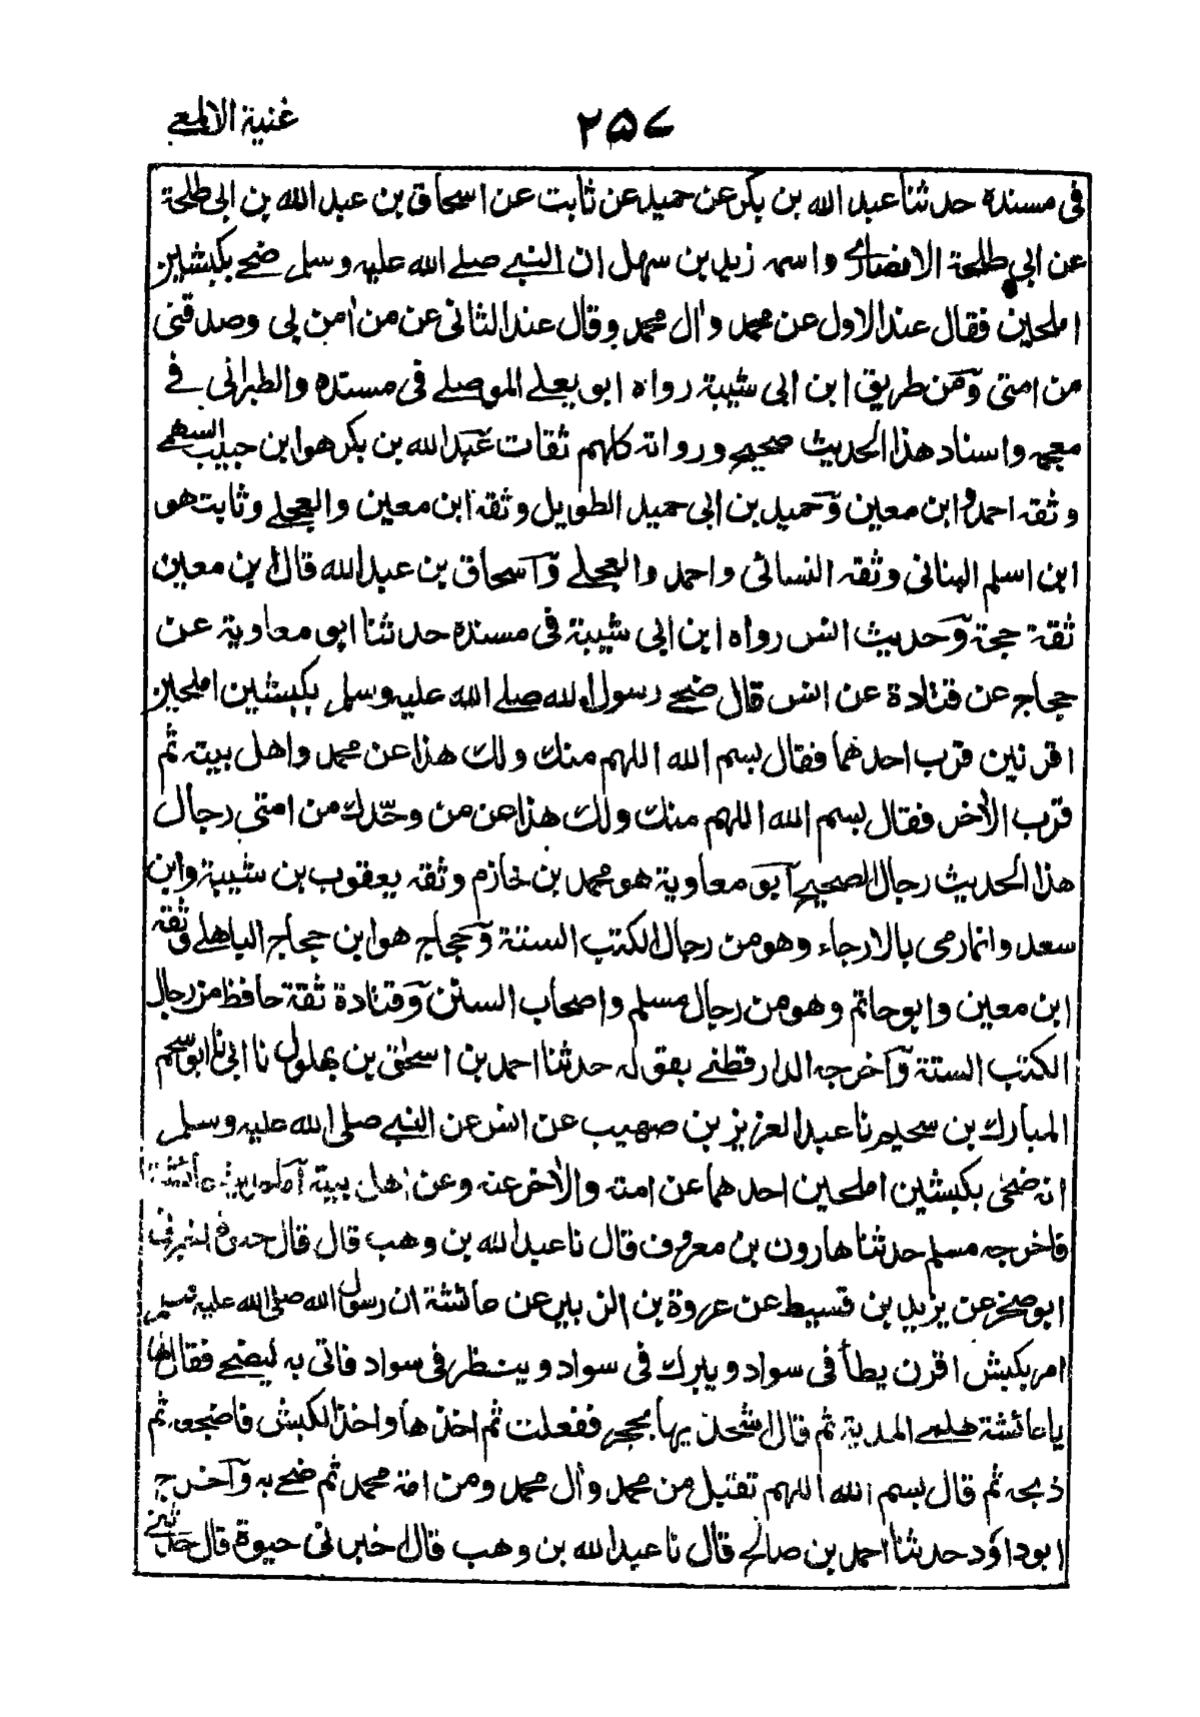 غنية الالمعي
٢٥٧
في مسنده حدثنا عبد الله بن بكر عن حميد عن ثابت عن اسحاق بن عبد الله بن ابي طلحة
عن ابي طلحة الانصاري واسمه زيد بن سهل ان النبي صلى الله عليه وسلم ضحى بكبشين
املحين فقال عند الاول عن محمد وأل محمد وقال عند الثاني عن من أمن بي وصدقني
من امتي ومن طريق ابن ابي شيبة رواه ابو يعلى الموصلي في مسنده والطبراني في
معجمه واسناد هذا الحديث صحيح ورواته كلهم ثقات عبد الله بن بكر هو ابن حبيب السهمي
وثقه احمد وابن معين وحميد بن ابي حميد الطويل وثقه ابن معين والعجلي وثابت هو
ابن اسلم البناني وثقه النسائي واحمد والعجلي وآسحاق بن عبد الله قال ابن معين
ثقة حجة وحديث انس رواه ابن ابي شيبة في مسنده حدثنا ابو معاوية عن
حجاج عن قتادة عن انس قال ضحى رسول الله صلى الله عليه وسلم بكبشين املحين
اقرنين قرب احدهما فقال بسم الله اللهم منك ولك هذا عن محمد واهل بيته ثم
قرب الأخر فقال بسم الله اللهم منك ولك هذا عن من وحّدك من امتي رجال
هذا الحديث رجال الصحيح آبو معاوية هو محمد بن خازم وثقه يعقوب بن شيبة وابن
سعد وانما رمى بالارجاء وهو من رجال الكتب الستة وحجاج هو ابن حجاج الباهلي وثقه
ابن معين وابو حاتم وهو من رجال مسلم واصحاب السنن وقتادة ثقة حافظ من رجال
الكتب الستة وآخرجه الدارقطني بقوله حدثنا احمد بن اسحٰق بن بهلول نا ابي نا ابو سحيم
المبارك بن سحيم نا عبد العزيز بن صهيب عن انس عن النبي صلى الله عليه وسلم
انه ضحى بكبشين املحين احدهما عن امته والأخر عنه وعن اهل بيته آما حديث عائشة
فاخرجه مسلم حدثنا هارون بن معروف قال نا عبد الله بن وهب قال قال حيوة اخبرني
ابو صخر عن يزيد بن قسيط عن عروة بن الزبير عن عائشة ان رسول الله صلى الله عليه وسلم
امر بكبش اقرن يطأ في سواد ويبرك في سواد وينظر في سواد فاتى به ليضحي فقال لها
يا عائشة هلمي المدية ثم قال اشحذيها بحجر ففعلت ثم اخذها واخذ الكبش فاضجعه ثم
ذبحه ثم قال بسم الله اللهم تقبل من محمد وأل محمد ومن امة محمد ثم ضحى به وآخرج
ابو داؤد حدثنا احمد بن صالح قال نا عبد الله بن وهب قال اخبراني حيوة قال حدثني